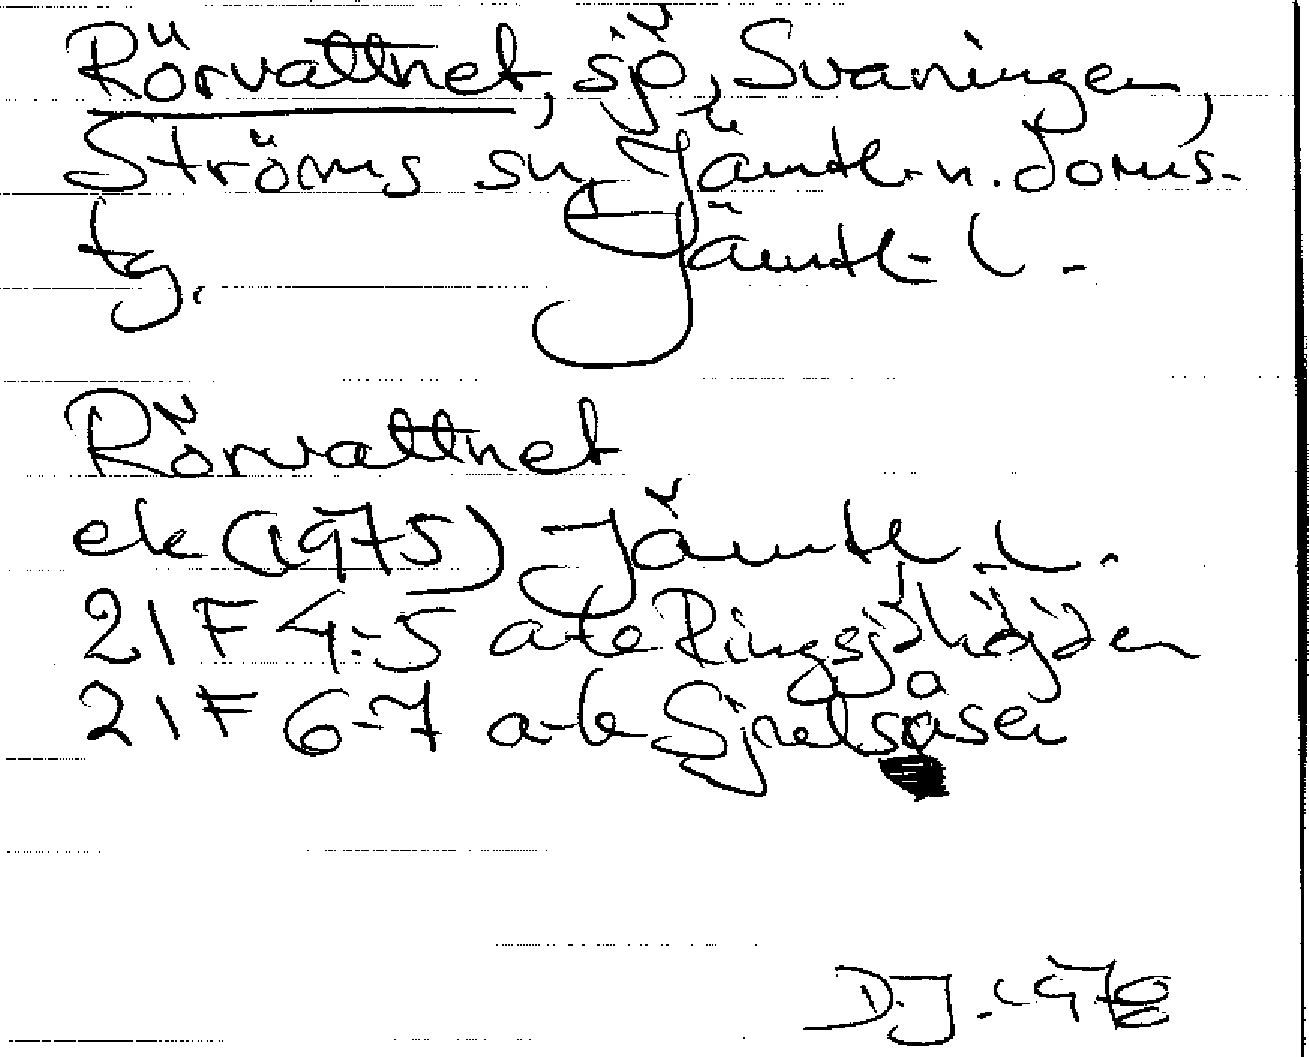 Rörvattnet, sjö, Svaningen,
Ströms sn, Jämtl. n. doms.
tg. Jämtl. l.
Rörvattnet
ek (1975) Jämtl. l.
21 F 4-5 a-b Ringsjöhöjden
21 F 6-7 a-b Sjnelsåsen
DJ. 197